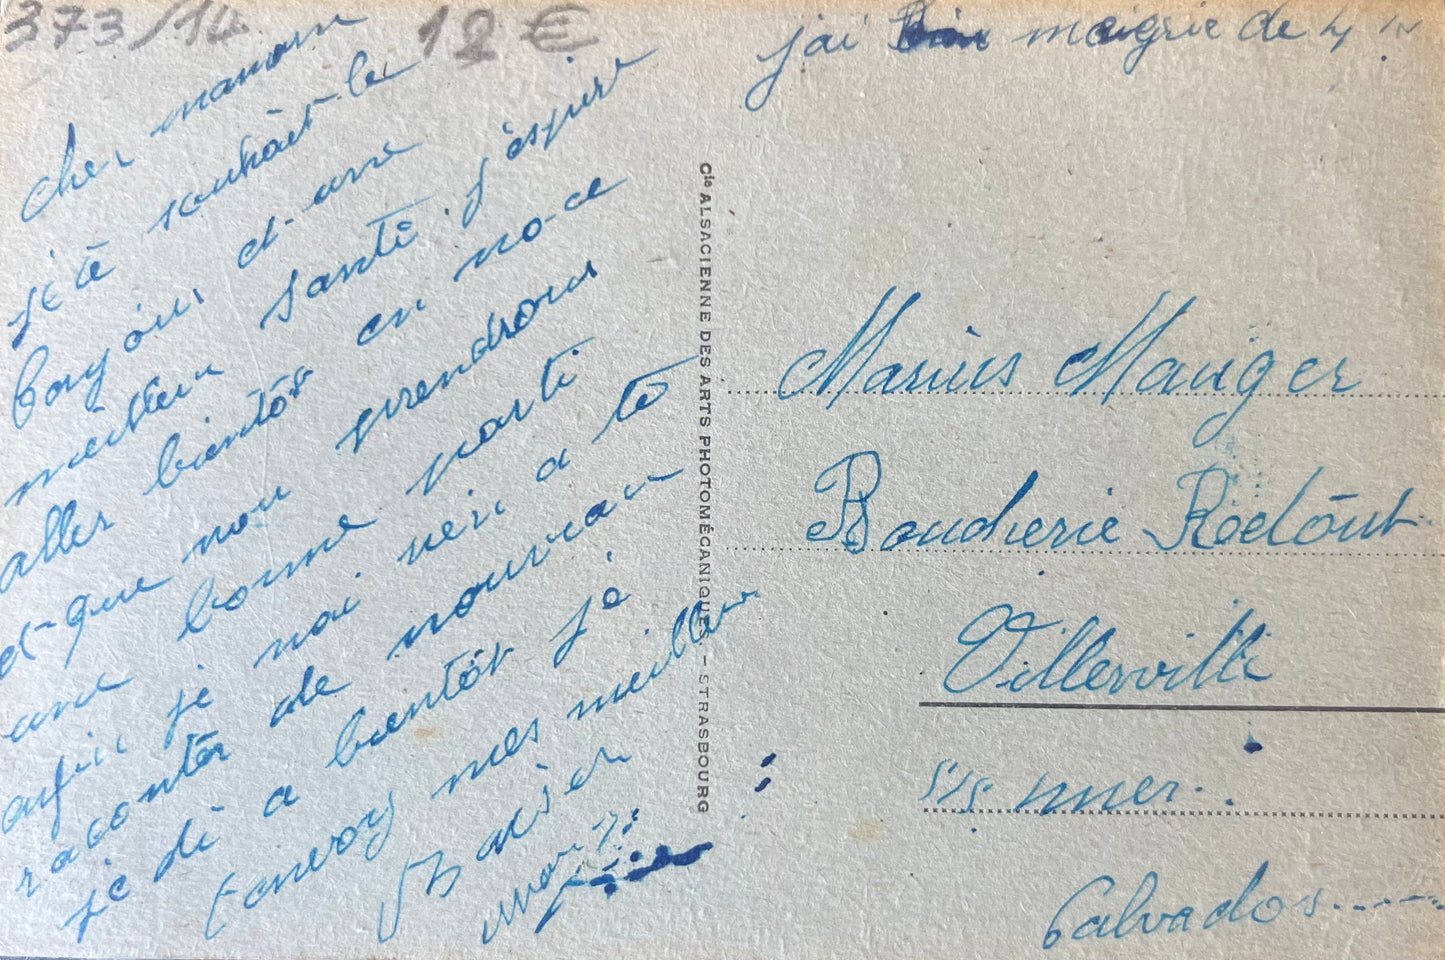 373/14
12 €
j'ai maigrie de 4
cher maman
je tè souhait le
bonjour et une
meilleur santé. j'éspire
aller bientôt en no-ce
et-que nou prendrons
une bonne parti
afin je nai rien a te
raconter de nouveau
je di a bientôt jé
tenvoy mes meilleur
Cie ALSACIENNE DES ARTS PHOTOMÉCANIQUES. – STRASBOURG
Marius Mauger
Boucherie Redout
Villerville
s/s mer
Calvados